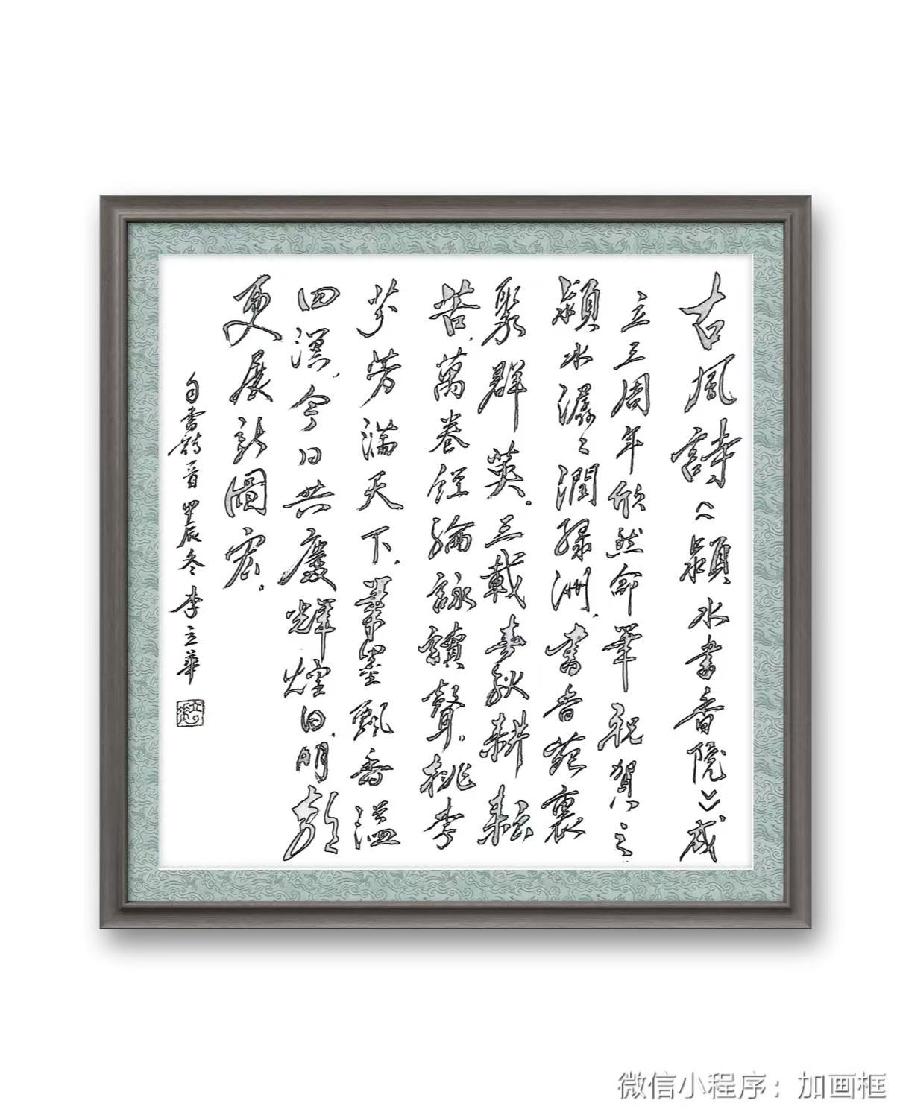 古風詩《潁水書香院》成
立三周年欣然命筆祝賀之
潁水潺々潤緑洲,書香苑裏
聚群英。三載春秋耕耘
苦,萬卷經綸詠讀聲。桃李
芬芳滿天下,墨飄香溢
四溟。今日共慶輝煌日,明朝
更展新圖宏。
自書詩首 甲辰冬 李立華
微信小程序:加画框